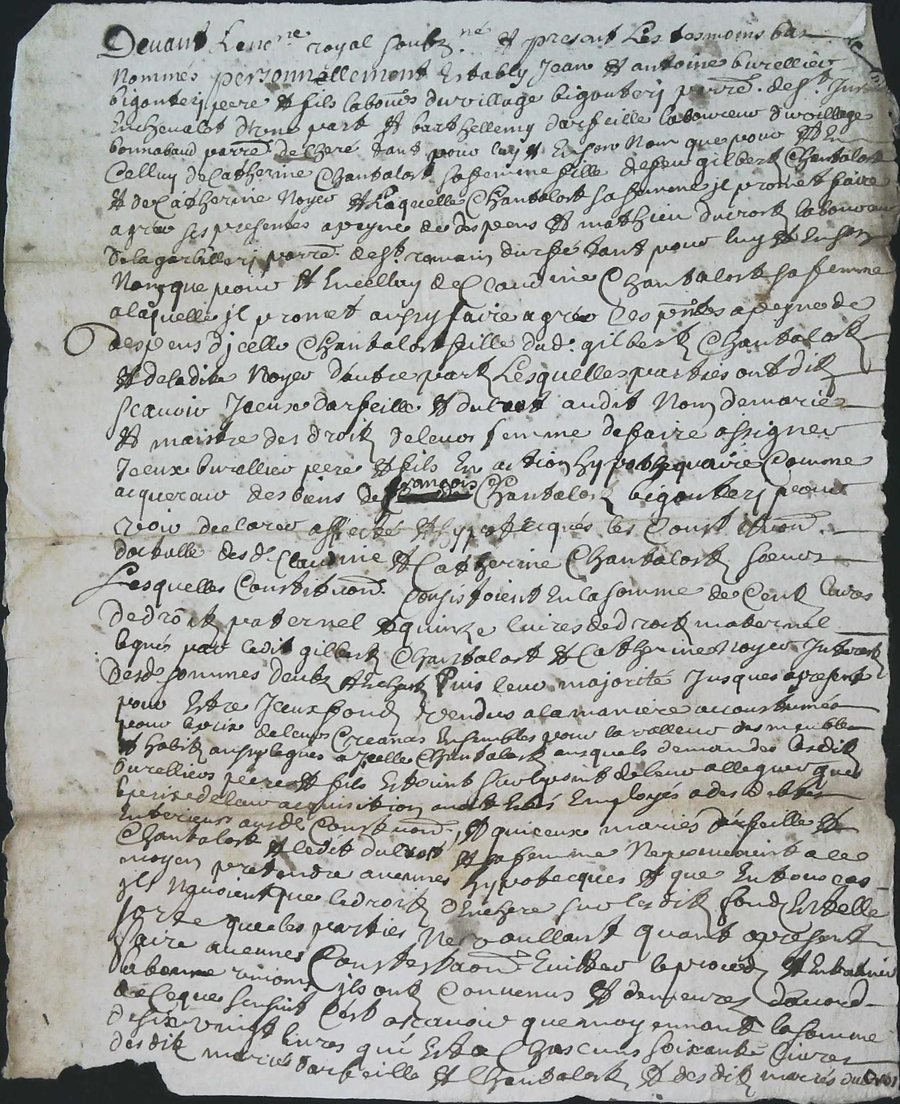 Devant le no.re royal soubz.né et present les tesmoins bas
nommés personnellement estably Jean et antoine burellier
bigouteri pere et fils laboureurs du village bigouteri parre. de st. Just
En chevalet d'une part et barthellemy darfeille laboureur du village
bonnabaud parre. de Chere tant pour luy et En son Nom que pour et En
Celluy de Catherine Chantalost sa femme fille de feu gilbert Chantalost
et de Catherine Noyer et laquelle Chantalost sa femme il promet faire
agreer ses presentes a peyne de despens et mathieu ducrost laboureur
de la garbilleri parre. de st. romain durfé tant pour luy et En son
Nom que pour et En celluy de Claudine Chantalost sa femme
a laquelle il promet aussy faire agreer Ces pntes a peyne de
despens d'icelle Chantalost fille dud. gilbert Chantalost
et de la dite Noyer d'autre part Lesquelles parties ont dit
scavoir Iceux darfeille et ducrost audit Nom de maries
et maistre des droitz de leurs femme de faire assigner
Iceux burallier pere et fils En action hypothequaire Comme
acquereur des biens de françois Chantalost bigouteri pour
voir declarer affecté et hypotecqués les Constitu.on
dotalle desd. Claudine et Catherine Chantalost soeurs
Lesquelles Constitu.on Consistoient En la somme de Cent livres
de droit paternel et quinze livres de droit maternel
legués par ledit gilbert Chantalost et Catherine Noyer Interest
desd. sommes deubz et Puis leur majorité Jusques apresent
pour Estre Iceux fondz vendus a la maniere accoustumée
pour le prix de leurs Creances Ensembles pour la valleur des meubles
et habitz aussy legués a Icelles Chantalost ausquels demandes lesdit
burelliers pere et fils Estoint sur le point de leur alleguer que
le prix de leur acquisition avoit Estés Employés a des debtes
Enterieurs ausd. Constitu.on, et que iceux mariés darfeille et
Chantalost et ledit ducrost et sa femme Ne pouvoient a ce
moyen pretendre aucunes hypotecques et que En tous cas
ils N'avoient que le droit d'Enchere sur lesdit fondz Et telle
sorte que les parties Ne voullant quant apresent
faire aucunes Contesta.on Eviter le procés et Entretenir
la bonne union ils ont Convenus et demeurés d'acord
de Ce que s'ensuit C'est ascavoir que moyennant la somme
de six vingt livres qui Est a Chascuns soixante livres
desdit mariés darfeille et Chantalost et desdit mariés ducrost